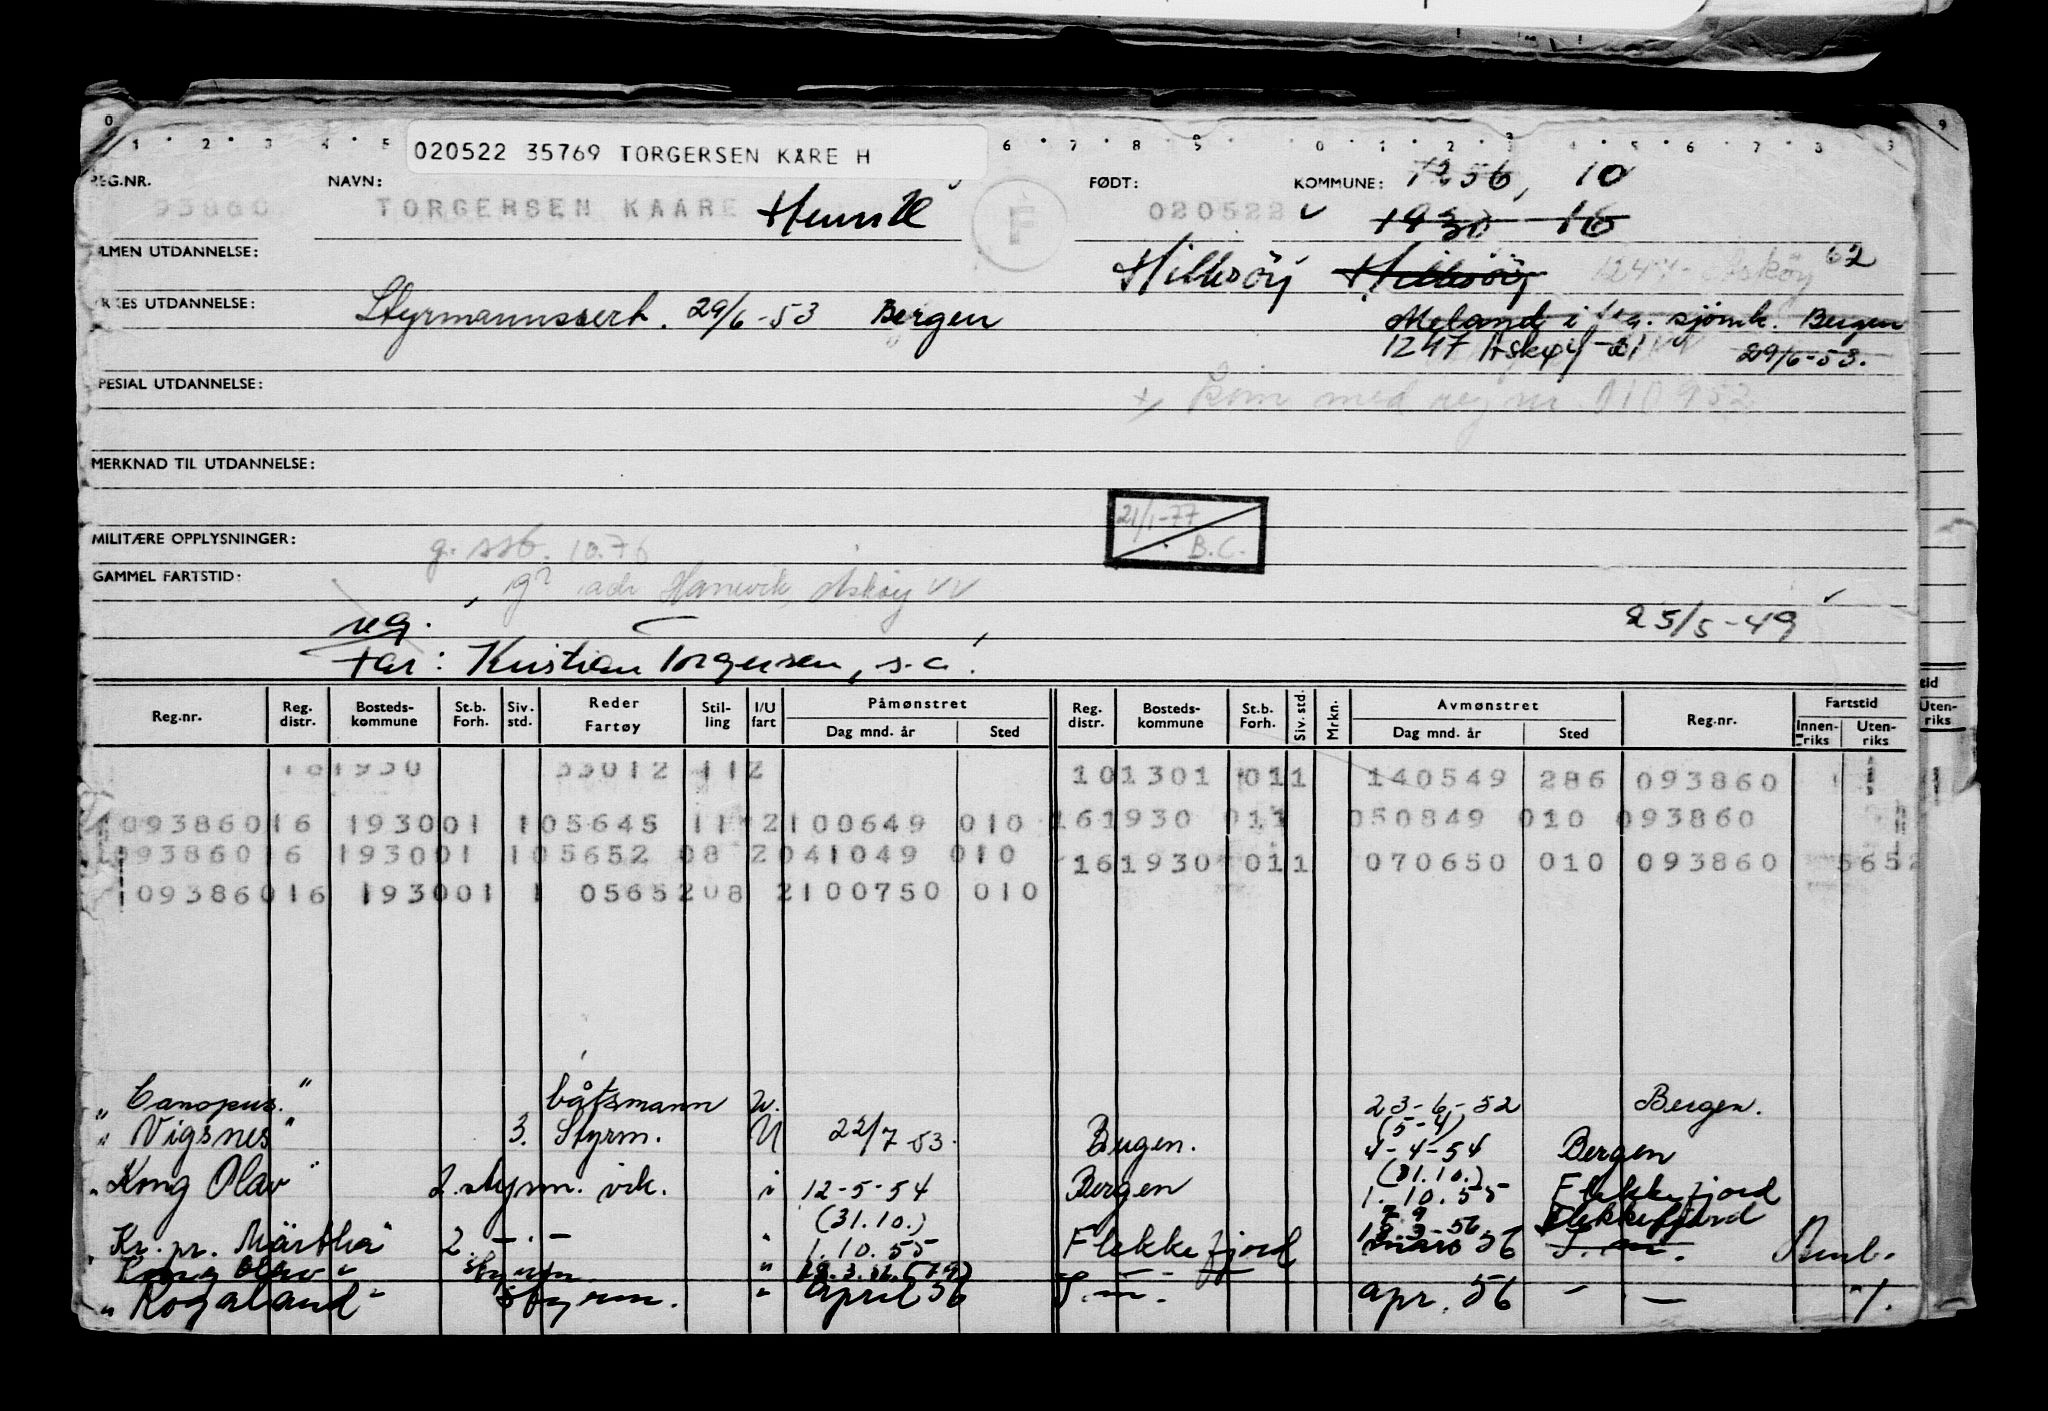 020522 35769 TORGERSEN KÅRE H
REG.NR. NAVN: FØDT: KOMMUNE: 1256, 10
93860 TORGERSEN KAARE Henrik F 020522 1930 16
ALMEN UTDANNELSE: Hillesöy Hillesöy 1247 - Asköy 62
YRKES UTDANNELSE: Styrmannssert. 29/6-53 Bergen Meland i flg. sjömk. Bergen
1247 Askøy 29/6-53.
SPESIAL UTDANNELSE: kom med reg nr 010952
MERKNAD TIL UTDANNELSE:
21/1-77
MILITÆRE OPPLYSNINGER: g. ssb. 10.76 B.C.
GAMMEL FARTSTID: adr Hanevik, Askøy
reg. 25/5-49
Far: Kristian Torgersen, s.a.
Reg.nr. Reg. distr. Bosteds- kommune St.b. Forh. Siv. std. Reder Fartøy Stil- ling I/U fart Påmønstret Dag mnd. år Sted Reg. distr. Bosteds- kommune St.b. Forh. Siv. std. Mrkn. Avmønstret Dag mnd. år Sted Reg.nr. Fartstid Innen- riks Uten- riks
161930 33012 112 101301 011 140549 286 093860
093860 16 193001 1 05645 11 2 100649 010 161930 011 050849 010 093860
093860 16 193001 1 05652 08 2 041049 010 161930 011 070650 010 093860 5652
093860 16 193001 1 05652 08 2 100750 010
"Canopus" båtsmann u. 23-6-52 Bergen.
(5-4)
"Vigsnes" 3. Styrm. U 22/7 53. Bergen. 4-4-54 Bergen
(31.10.)
"Kong Olav" 2. styrm. vik. i 12-5-54 Bergen 1.10.55 Flekkefjord
(31.10.)
"Kr. pr. Märtha" 2. - " - " 1.10.55 Flekkefjord mars 56
"Kong Olav" Styrm. "
"Rogaland" Styrm. " april 56 apr. 56 - -